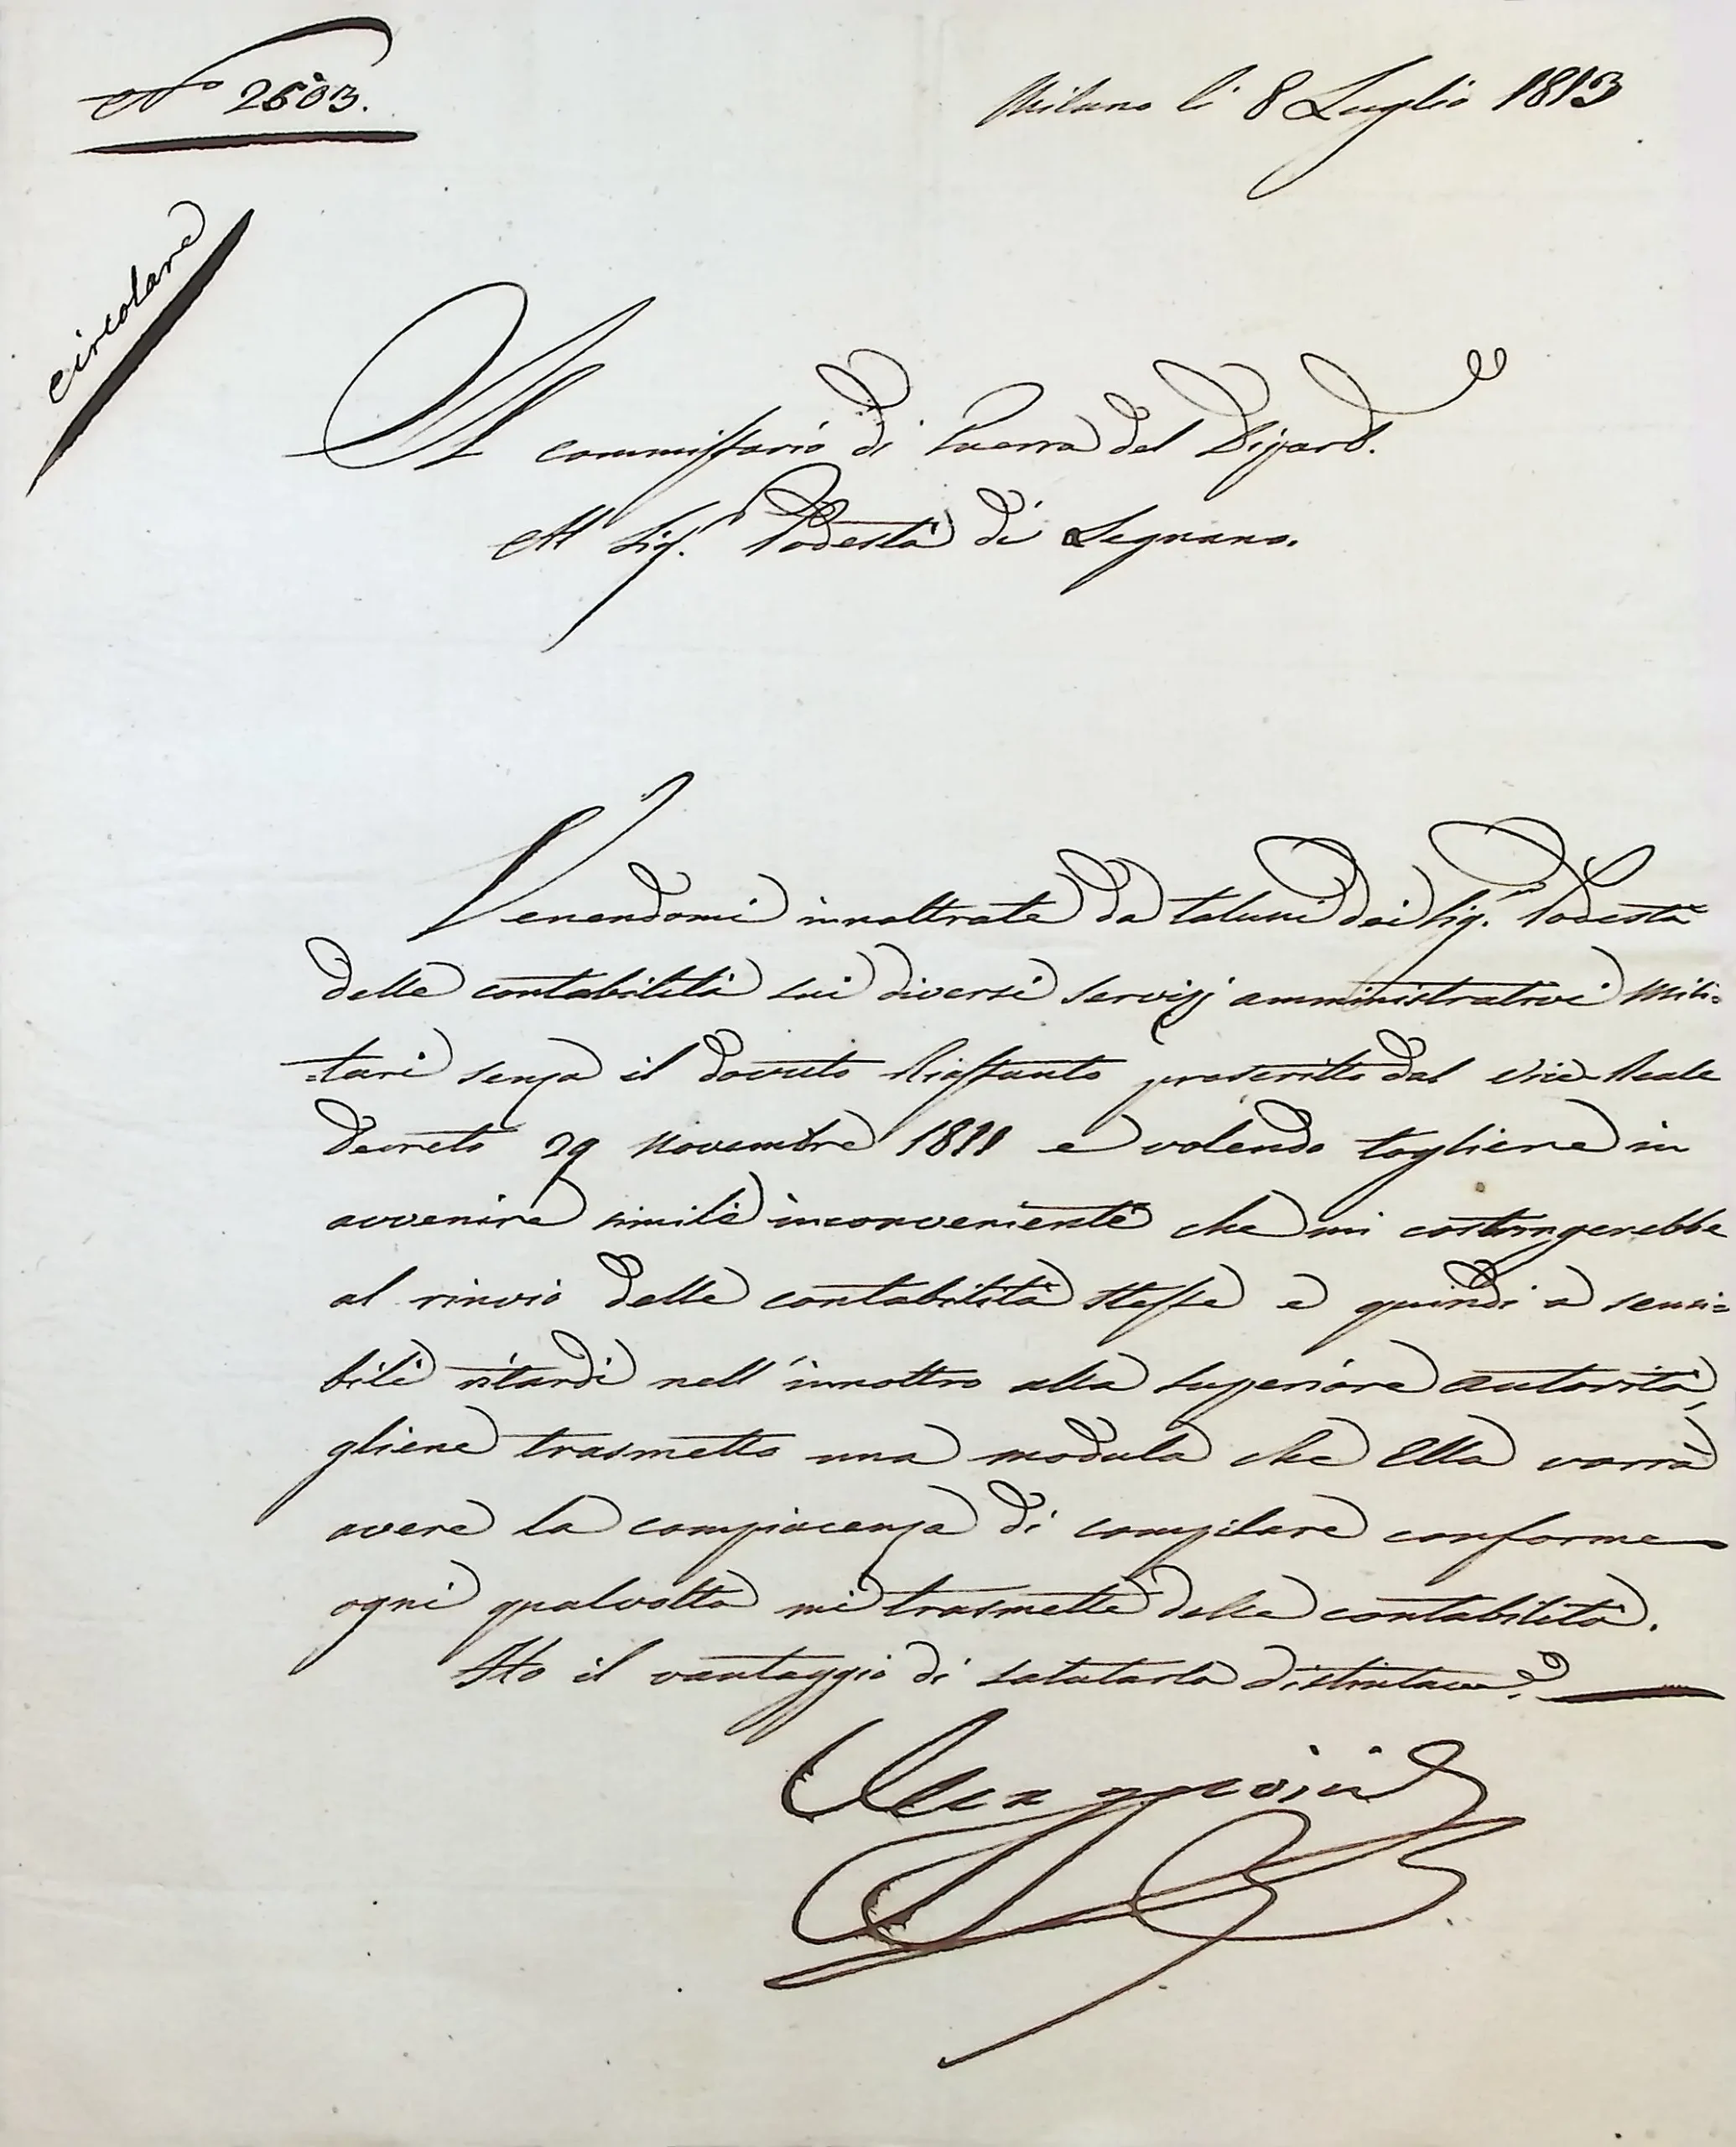 N.º 2503.
Milano li 8 Luglio 1813
circolare
Il commissario di Guerra del Dipart.
Al Sig.r Podestà di Legnano.
Venendomi innoltrate da taluni dei Sig.ri Podestà
delle contabilità sui diversi servizj amministrativi Mili=
=tari senza il dovuto Riassunto prescritto dal Vice-Reale
decreto 29 Novembre 1811 e volendo togliere in
avvenire simile inconveniente che mi costringerebbe
al rinvio delle contabilità stesse e quindi a sensi=
bili ritardi nell'innoltro alla superiore autorità,
gliene trasmetto una modula che Ella vorrà
avere la compiacenza di compilare conforme
ogni qualvolta mi trasmette delle contabilità.
Ho il vantaggio di salutarla distintam.e